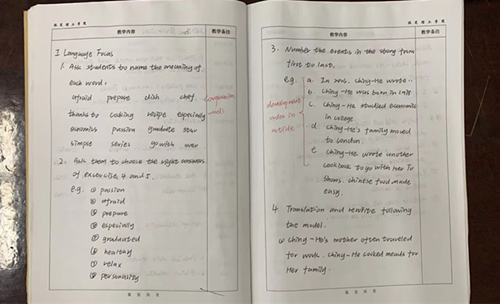 教学内容
教学备注
I Language Focus
1. Ask students to name the meaning of
each word.
afraid prepare dish chef
thanks to cooking recipe especially
economics passion graduate star
simple series go with over
2. Ask them to choose the right answers
of exercise 4 and 5.
e.g. ① passion
② afraid
③ prepare
④ especially
⑤ graduated
⑥ healthy
⑦ relax
⑧ personality
教学内容
教学备注
3. Number the events in the story from
first to last.
e.g. a. In 2005, Ching-He wrote..
b Ching-He was born in 1978
c. Ching-He studied economics
in college
d Ching-He's family moved
to London.
e. Ching-He wrote another
cookbook to go with her TV
shows. Chinese food made
easy.
4 Translation and rewrite following
the model.
① Ching-He's mother often traveled
for work. Ching-He cooked meals for
Her family.